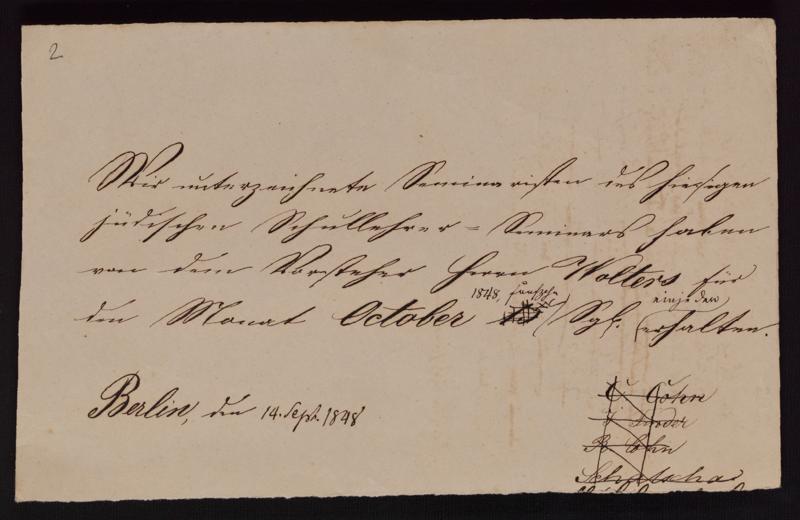 2
Wir unterzeichnete Seminaristen des hiesigen
jüdischen Schullehrer = Seminars haben
von dem Vorsteher Herrn Wolters für
1848, einjeder
den Monat October Sgl. erhalten.
Berlin, den 14. Sept. 1848
Cohn